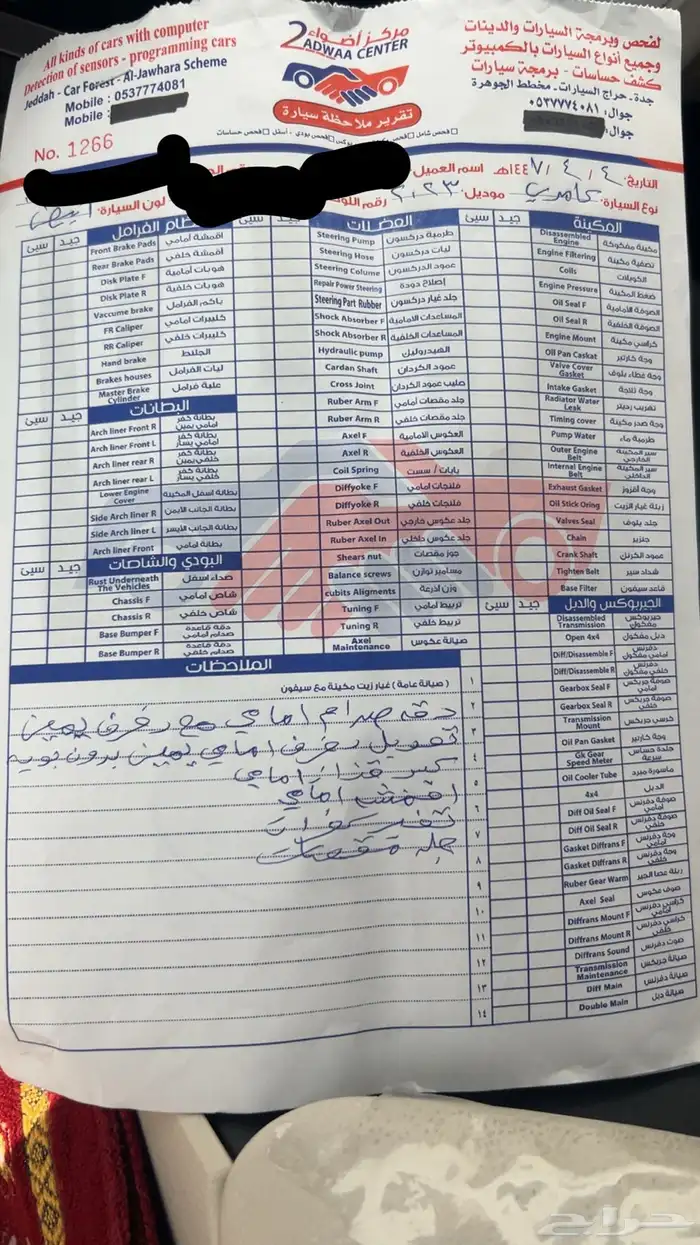 All kinds of cars with computer
Detection of sensors - programming cars
Jeddah - Car Forest - Al-Jawhara Scheme
Mobile : 0537774081
Mobile :
No. 1266
مركز أضواء 2
2 ADWAA CENTER
تقرير ملاحظة سيارة
لفحص وبرمجة السيارات والدينات
وجميع أنواع السيارات بالكمبيوتر
كشف حساسات - برمجة سيارات
جدة - حراج السيارات - مخطط الجوهرة
جوال: ٠٥٣٧٧٧٤٠٨١
جوال:
التاريخ: ٤ / ٤ / ١٤٤٧هـ اسم العميل
نوع السيارة: كامري موديل: ٢٠٢٣ رقم اللوحة
لون السيارة: ابيض
المكينة جيد سيئ
Disassembled Engine مكينة مفكوكة
Engine Filtering تصفية مكينة
Coils الكويلات
Engine Pressure ضغط المكينة
Oil Seal F الصوفة الأمامية
Oil Seal R الصوفة الخلفية
Engine Mount كراسي مكينة
Oil Pan Caskat وجة كارتير
Valve Cover Gasket وجة غطاء بلوف
Intake Gasket وجة ثلاجة
Radiator Water Leak تهريب رديتر
Timing cover وجة صدر مكينة
Pump Water طرمبة ماء
Outer Engine Belt سير المكينة الخارجي
Internal Engine Belt سير المكينة الداخلي
Exhaust Gasket وجة أقزوز
Oil Stick Oring ربلة غيار الزيت
Valves Seal جلد بلوف
Chain جنزير
Crank Shaft عمود الكرنك
Tighten Belt شداد سير
Base Filter قاعد سيفون
الجيربوكس والدبل جيد سيئ
Disassembled Transmission جيربوكس مفكوك
Open 4x4 دبل مفكوك
Diff/Disassemble F دفرنس أمامي مفكوك
Diff/Disassemble R دفرنس خلفي مفكوك
Gearbox Seal F صوفة جربكس أمامي
Gearbox Seal R صوفة جربكس خلفي
Transmission Mount كرسي جربكس
Oil Pan Gasket وجة كارتير
Gk Gear Speed Meter جلدة حساس سرعة
Oil Cooler Tube ماسورة مبرد
4x4 الدبل
Diff Oil Seal F صوفة دفرنس أمامي
Diff Oil Seal R صوفة دفرنس خلفي
Gasket Diffrans F وجة دفرنس أمامي
Gasket Diffrans R وجة دفرنس خلفي
Ruber Gear Warm ربلة عصا الجير
Axel Seal صوف عكوس
Diffrans Mount F كراسي دفرنس أمامي
Diffrans Mount R كراسي دفرنس خلفي
Diffrans Sound صوت دفرنس
Transmission Maintenance صيانة جربكس
Diff Main صيانة دفرنس
Double Main صيانة دبل
العضلات جيد سيئ
Steering Pump طرمبة دركسون
Steering Hose ليات دركسون
Steering Colume عمود الدركسون
Repair Power Steering إصلاح دودة
Steering Part Rubber جلد غيار دركسون
Shock Absorber F المساعدات الامامية
Shock Absorber R المساعدات الخلفية
Hydraulic pump الهيدروليك
Cardan Shaft عمود الكردان
Cross Joint صليب عمود الكردان
Ruber Arm F جلد مقصات أمامي
Ruber Arm R جلد مقصات خلفي
Axel F العكوس الامامية
Axel R العكوس الخلفية
Coil Spring يايات / سست
Diffyoke F فلنجات امامي
Diffyoke R فلنجات خلفي
Ruber Axel Out جلد عكوس خارجي
Ruber Axel In جلد عكوس داخلي
Shears nut جوز مقصات
Balance screws مسامير توازن
cubits Aligments وزن اذرعة
Tuning F تربيط امامي
Tuning R تربيط خلفي
Axel Maintenance صيانة عكوس
نظام الفرامل جيد سيئ
Front Brake Pads اقمشة امامي
Rear Brake Pads أقمشة خلفي
Disk Plate F هوبات أمامية
Disk Plate R هوبات خلفية
Vaccume brake باكم الفرامل
FR Caliper كليبرات امامي
RR Caliper كليبرات خلفي
Hand brake الجلنط
Brakes houses ليات الفرامل
Master Brake Cylinder علبة فرامل
البطانات جيد سيئ
Arch liner Front R بطانة كفر أمامي يمين
Arch liner Front L بطانة كفر أمامي يسار
Arch liner rear R بطانة كفر خلفي يمين
Arch liner rear L بطانة كفر خلفي يسار
Lower Engine Cover بطانة اسفل المكينة
Side Arch liner R بطانة الجانب الأيمن
Side Arch liner L بطانة الجانب الأيسر
Arch liner Front بطانة امامي
البودي والشاصات جيد سيئ
Rust Underneath The Vehicles صداء اسفل
Chassis F شاص امامي
Chassis R شاص خلفي
Base Bumper F دقة قاعدة صدام امامي
Base Bumper R دقة قاعدة صدام خلفي
الملاحظات
١ ( صيانة عامة ) غيار زيت مكينة مع سيفون
٢ دق صدام امامي مع رفرف يمين
٣ تعديل رفرف امامي يمين بدون بويه
٤ امامي
٥ اقمشه امامي
٦ تغير كفرات
٧ جلد مقصات
٨
٩
١٠
١١
١٢
١٣
١٤
حراج